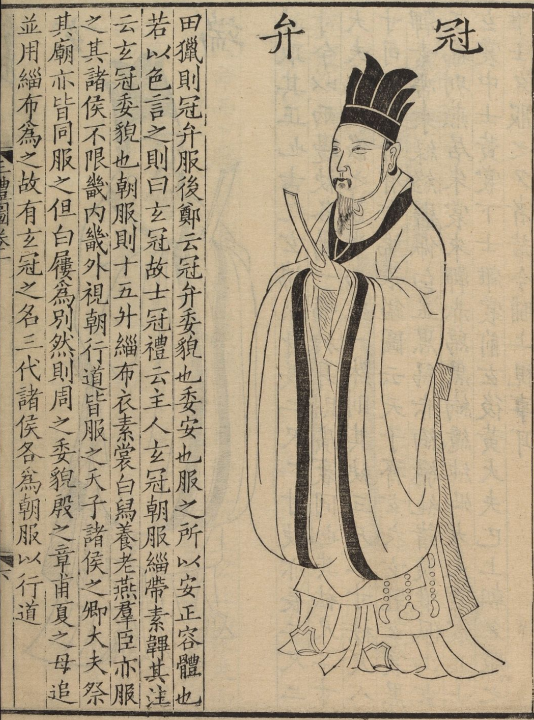 冠弁
田獵則冠弁服後鄭云冠弁委貌也委安也服之所以安正容體也
若以色言之則曰玄冠故士冠禮云主人玄冠朝服緇帶素韠其注
云玄冠委貌也朝服則十五升緇布衣素裳白舄養老燕羣臣亦服
之其諸侯不限畿内畿外視朝行道皆服之天子諸侯之卿大夫祭
其廟亦皆同服之但白屨爲別然則周之委貌殷之章甫夏之母追
並用緇布爲之故有玄冠之名三代諸侯各爲朝服以行道
三禮圖卷一
六